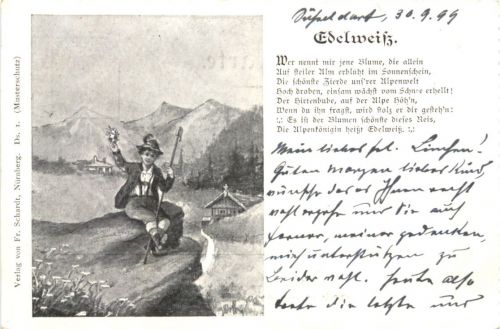 Düsseldorf, 30.9.99
Edelweiß.
Wer nennt mir jene Blume, die allein
Auf steiler Alm erblüht im Sonnenschein,
Die schönste Zierde uns'rer Alpenwelt
Hoch droben, einsam wächst vom Schnee erhellt!
Der Hirtenbube, auf der Alpe Höh'n,
Wenn du ihn fragst, wird stolz er dir gesteh'n:
:,: Es ist der Blumen schönste dieses Reis,
Die Alpenkönigin heißt Edelweiß. :,:
Mein liebes
Guten Morgen liebes Kind,
wünsche daß es Ihnen recht
wohl ergehe und Sie auch
ferner, meiner gedenken,
mich unterstützen zu
Heute also
die letzte und
Verlag von Fr. Schardt, Nürnberg. Ds. 1. (Musterschutz)